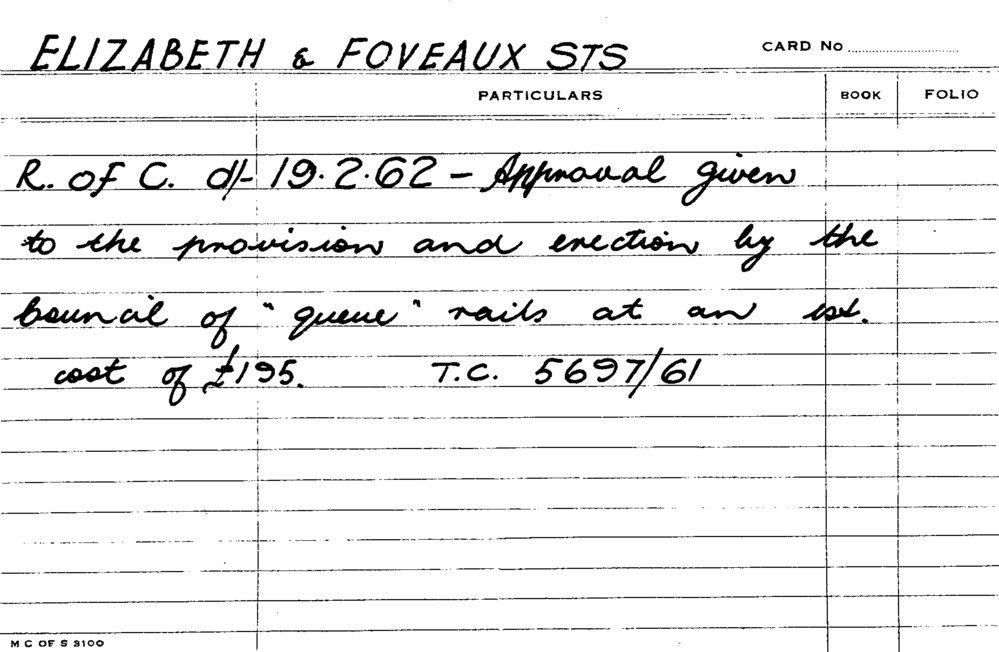 ELIZABETH & FOVEAUX STS
CARD No
PARTICULARS BOOK FOLIO
R. of C. d/- 19.2.62 - Approval given
to the provision and erection by the
Council of "queue" rails at an est.
cost of £195. T.C. 5697/61
M C OF S 3100